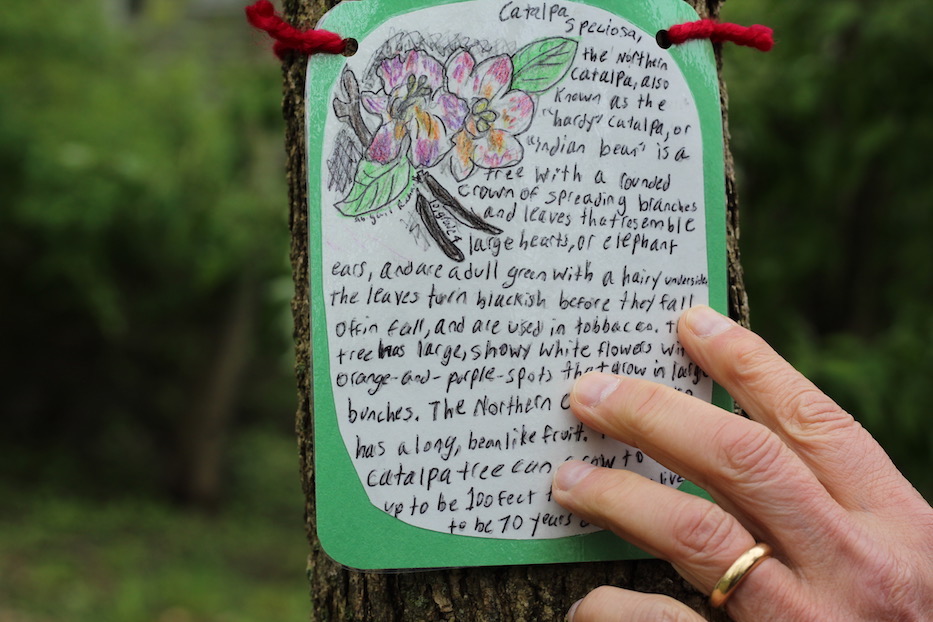 Catalpa
speciosa,
the Northern
catalpa, also
known as the
"hardy" catalpa, or
"indian bean" is a
tree with a rounded
crown of spreading branches
and leaves that resemble
large hearts, or elephant
ears, and are a dull green with a hairy underside
the leaves turn blackish before they fall
off in fall, and are used in tobbacco.
tree has large, showy white flowers
orange-and-purple-spots that grow in large
bunches. The Northern
has a long, beanlike fruit.
catalpa tree can grow to
up to be 100 feet
to be 70 years
grade 4